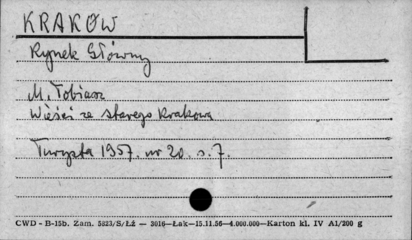 KRAKÓW
Rynek Główny
M. Tobiasz
Wieści ze starego Krakowa
Turysta 1957. nr 20. s. 7.
CWD - B-15b. Zam. 5823/S/Łż — 3016—Łak—15.11.56—4.000.000—Karton kl. IV A1/200 g